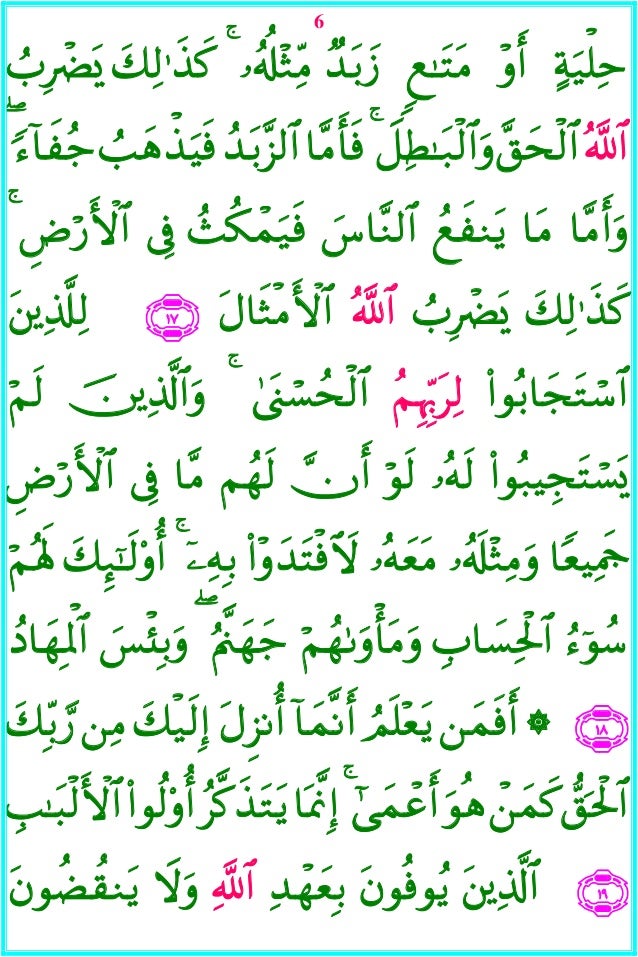 6
حِلۡيَةٍ أَوۡ مَتَٰعٖ زَبَدٞ مِّثۡلُهُۥۚ كَذَٰلِكَ يَضۡرِبُ
ٱللَّهُ ٱلۡحَقَّ وَٱلۡبَٰطِلَۚ فَأَمَّا ٱلزَّبَدُ فَيَذۡهَبُ جُفَآءٗۖ
وَأَمَّا مَا يَنفَعُ ٱلنَّاسَ فَيَمۡكُثُ فِي ٱلۡأَرۡضِۚ
كَذَٰلِكَ يَضۡرِبُ ٱللَّهُ ٱلۡأَمۡثَالَ ١٧ لِلَّذِينَ
ٱسۡتَجَابُواْ لِرَبِّهِمُ ٱلۡحُسۡنَىٰۚ وَٱلَّذِينَ لَمۡ
يَسۡتَجِيبُواْ لَهُۥ لَوۡ أَنَّ لَهُم مَّا فِي ٱلۡأَرۡضِ
جَمِيعٗا وَمِثۡلَهُۥ مَعَهُۥ لَٱفۡتَدَوۡاْ بِهِۦٓۚ أُوْلَٰٓئِكَ لَهُمۡ
سُوٓءُ ٱلۡحِسَابِ وَمَأۡوَىٰهُمۡ جَهَنَّمُۖ وَبِئۡسَ ٱلۡمِهَادُ
١٨ ۞ أَفَمَن يَعۡلَمُ أَنَّمَآ أُنزِلَ إِلَيۡكَ مِن رَّبِّكَ
ٱلۡحَقُّ كَمَنۡ هُوَ أَعۡمَىٰٓۚ إِنَّمَا يَتَذَكَّرُ أُوْلُواْ ٱلۡأَلۡبَٰبِ
١٩ ٱلَّذِينَ يُوفُونَ بِعَهۡدِ ٱللَّهِ وَلَا يَنقُضُونَ